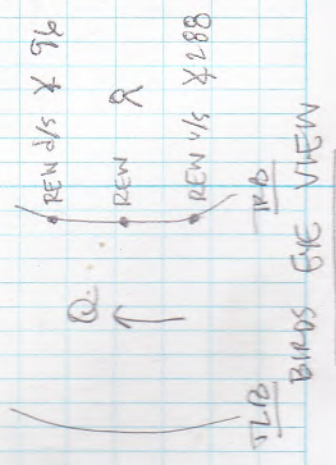 REW d/s ∡ 96
Q
REW
REW u/s ∡ 288
TLB TRB
BIRDS EYE VIEW